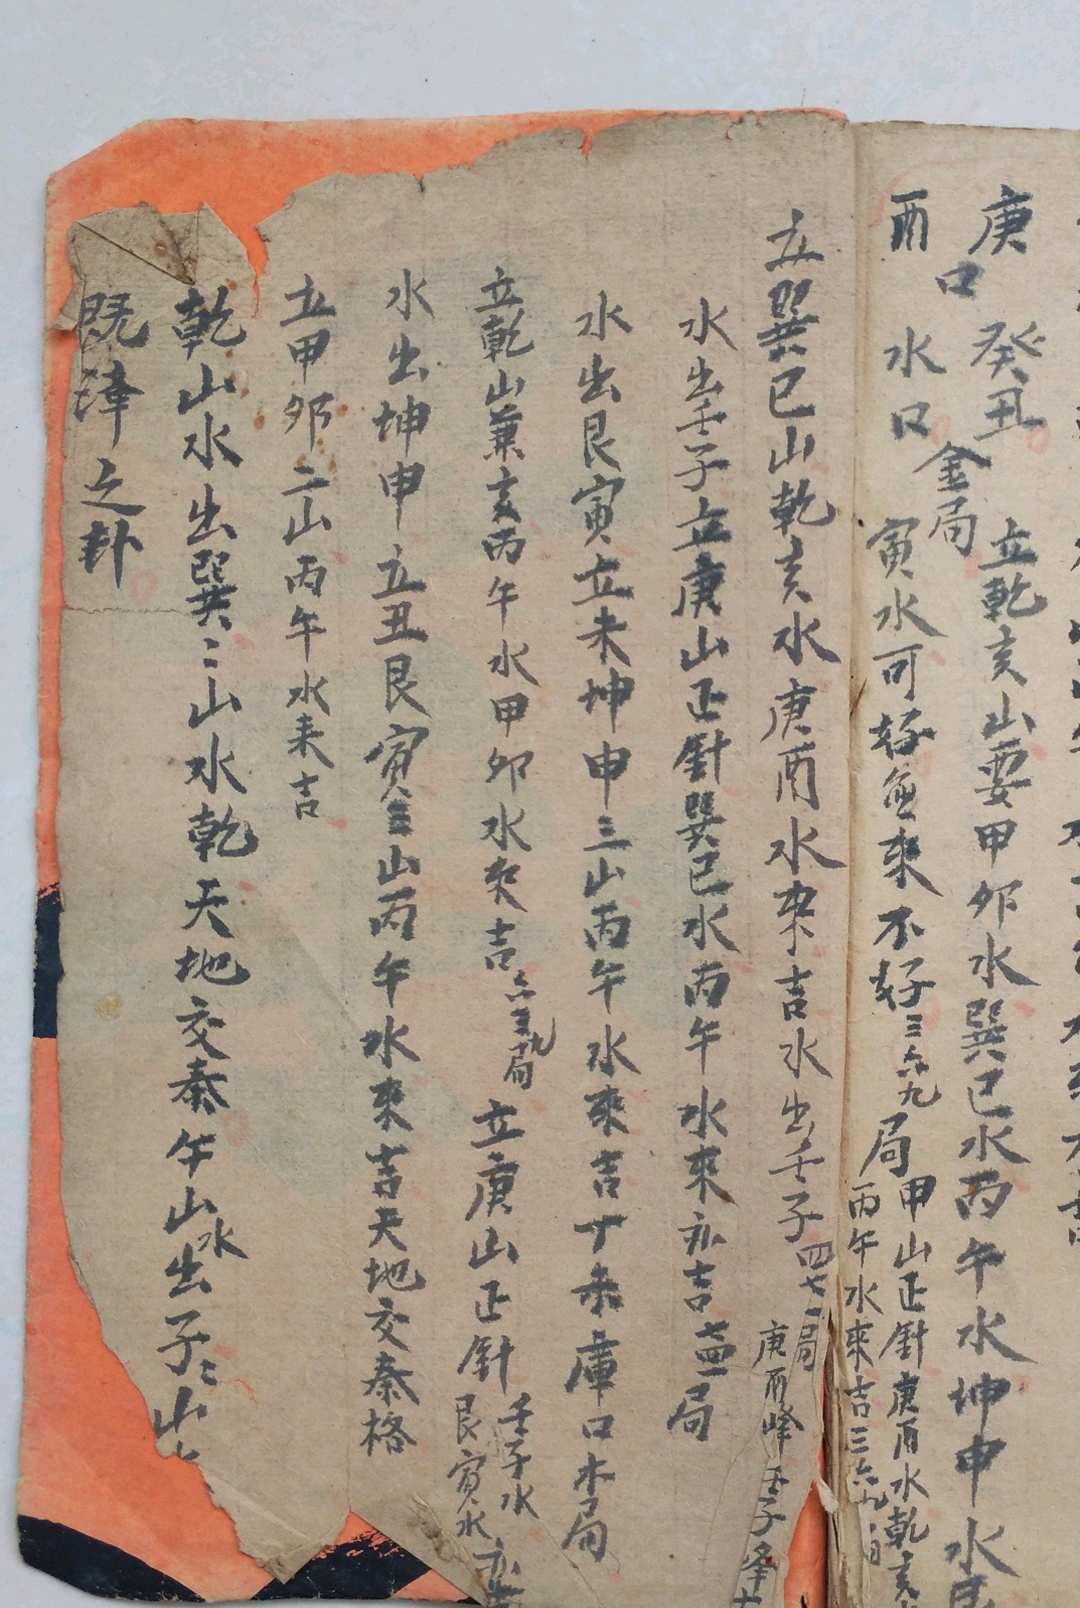 庚 癸丑 立乾亥山要甲卯水巽巳水丙午水坤申水
口 金局
酉 水口 寅水可好 來不好三六九局
甲山正針庚酉水乾亥
丙午水來吉三六九
立巽巳山乾亥水庚酉水來吉水出壬子四七一局
庚酉峰壬子峰
水出壬子立庚山正針巽巳水丙午水來亦吉 局
水出艮寅立未坤申三山丙午水來吉丁未庫口木局
立乾山兼亥丙午水甲卯水來吉 局立庚山正針
壬子水
艮寅水
亦
水出坤申立丑艮寅三山丙午水來吉天地交泰格
立甲卯二山丙午水来吉
乾山水出巽〻山水乾天地交泰午山水出子〻山
既濟之卦